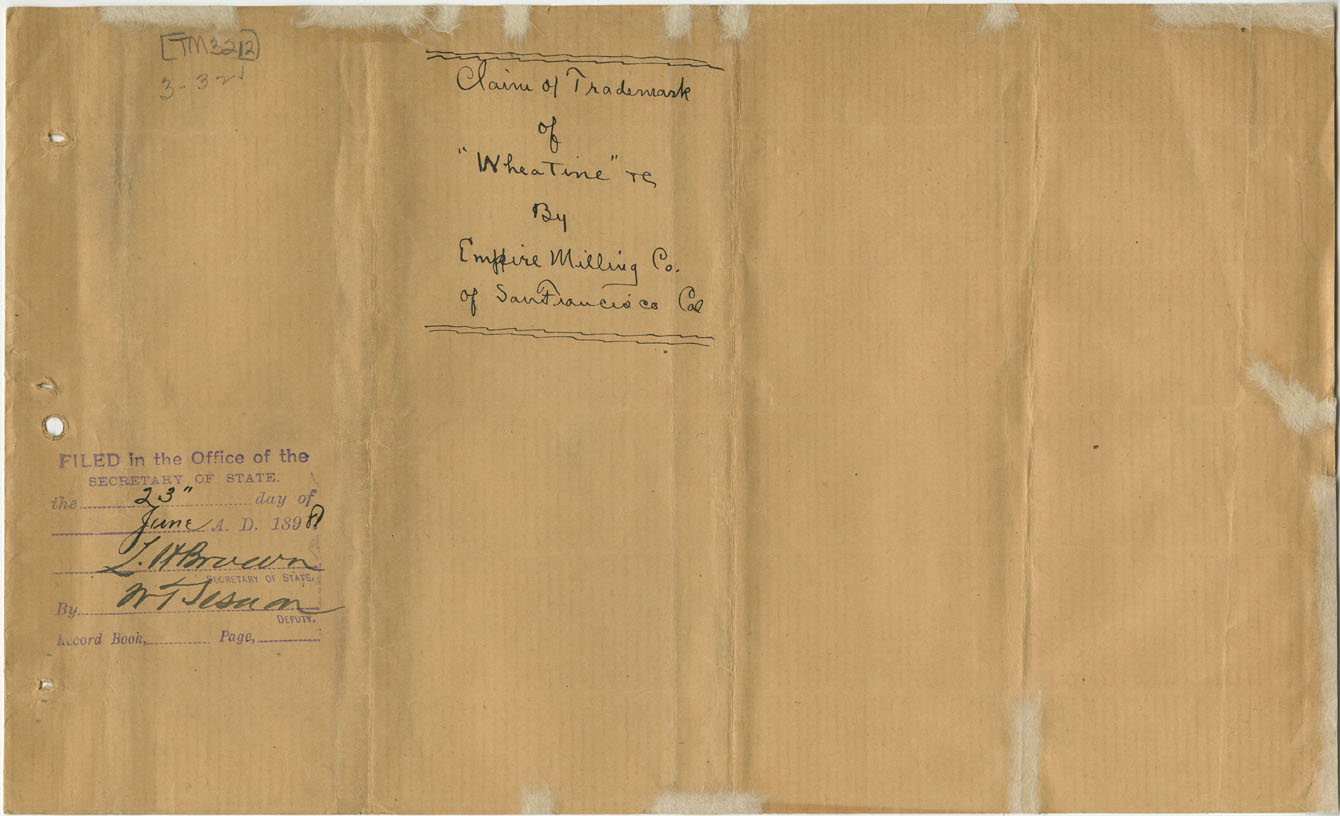 [TM3212]
3-32
Claim of Trademark
of
"Wheatine" &c
By
Empire Milling Co.
of San Francisco Cal
FILED in the Office of the
SECRETARY OF STATE.
the 23" day of
June A. D. 1898
L. H Brown
SECRETARY OF STATE.
By W T Sesnon
DEPUTY.
Record Book, Page,